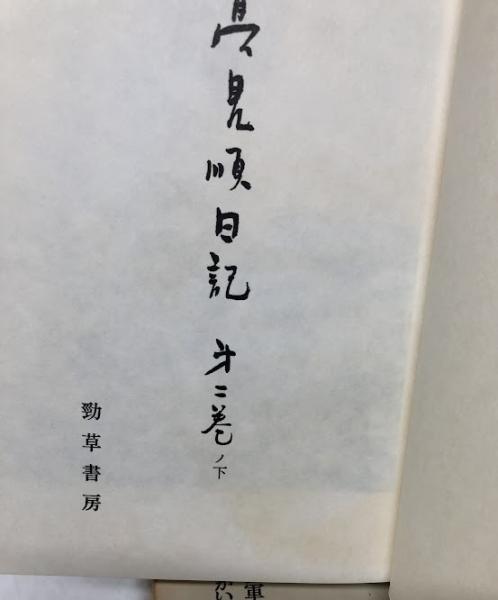 高見順日記 第二巻ノ下
勁草書房
軍
かい